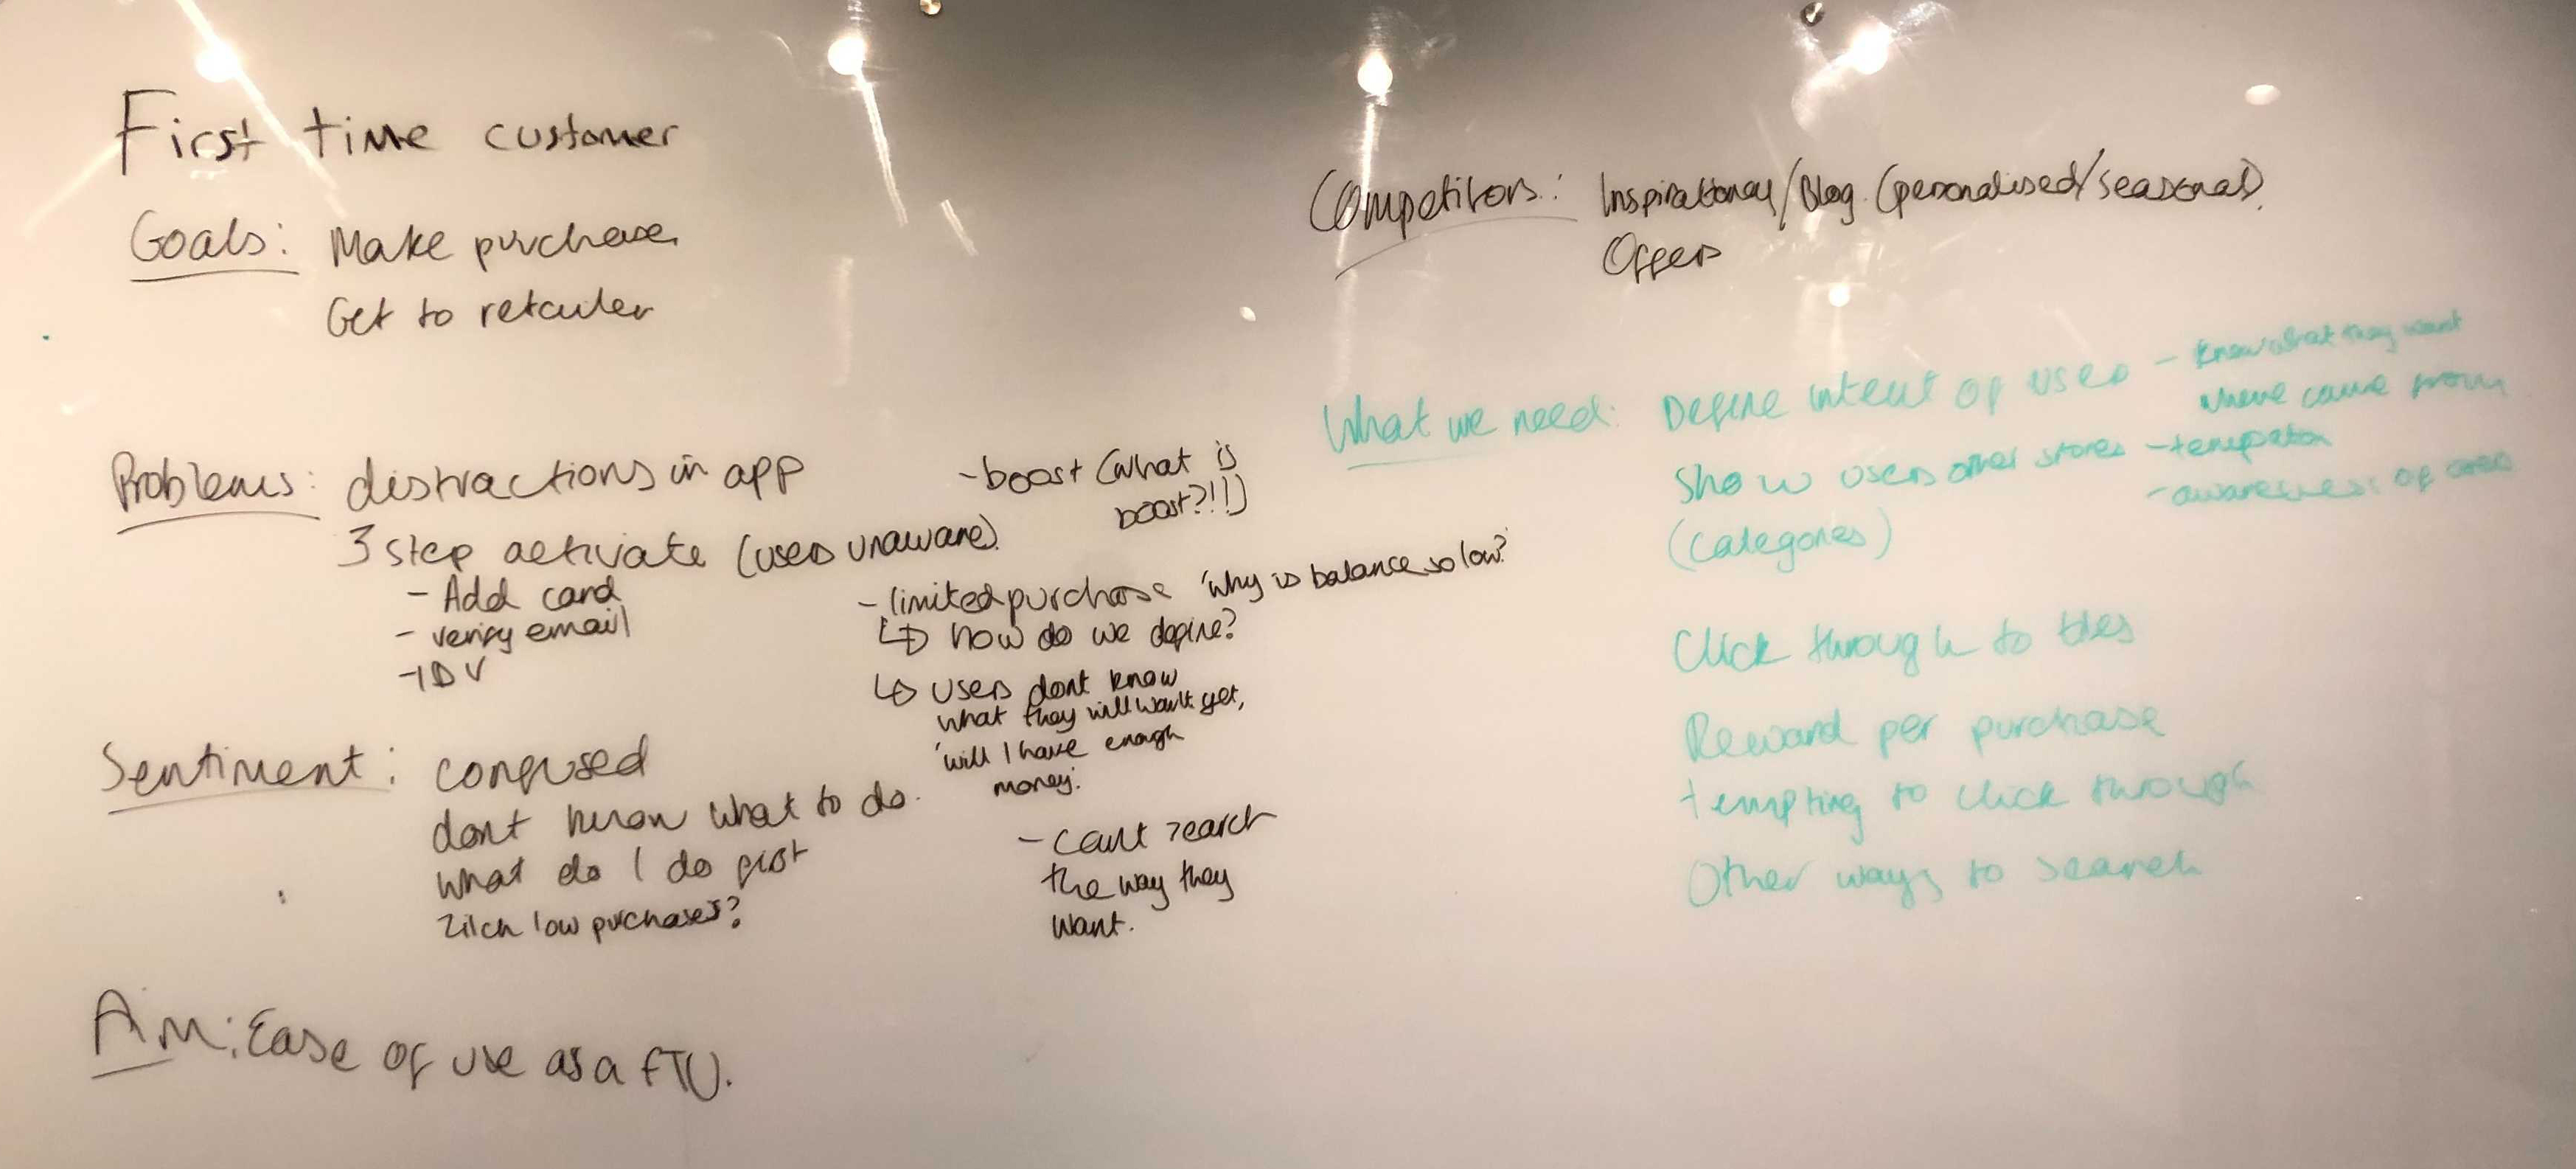 First time customer
Goals: Make purchase
Get to retailer
Problems: distractions in app
3 step activate (users unaware)
- Add card
- verify email
- IDV
- boost (what is
boost?!!)
- limited purchase 'why is balance so low?'
↳ how do we define?
↳ users dont know
what they will want yet,
'will I have enough
money.'
- cant search
the way they
want.
Sentiment: confused
dont know what to do.
what do I do first
Zilch low purchases?
Aim: Ease of use as a FTU.
Competitors: Inspirational/Blog (personalised/seasonal)
Offers
What we need: Define intent of user - know what they want
where came from
Show users other stores - temptation
- awareness of
(categories)
Click through to tiles
Reward per purchase
tempting to click through
Other ways to search